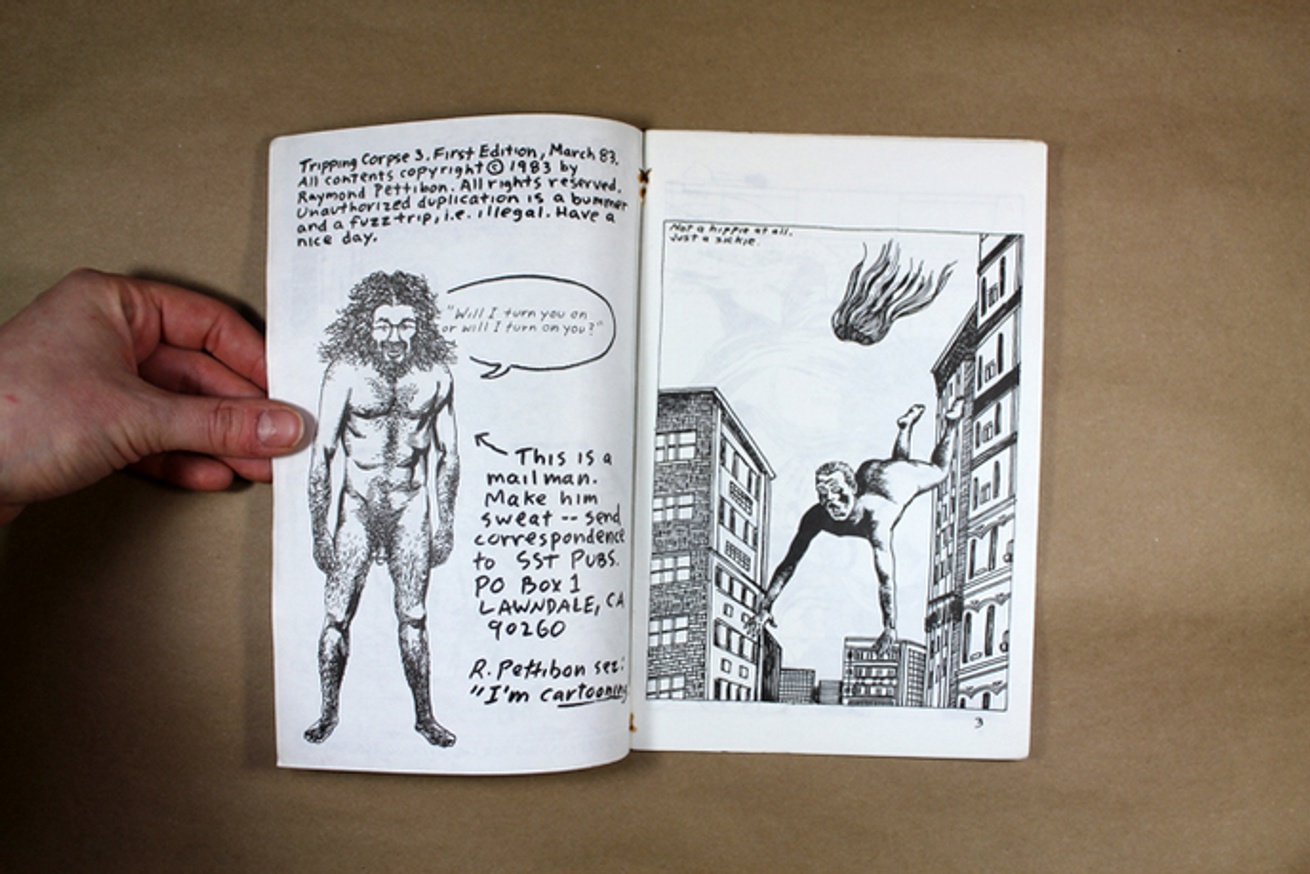 Tripping Corpse 3. First Edition, March 83.
All contents copyright © 1983 by
Raymond Pettibon. All rights reserved.
Unauthorized duplication is a bummer
and a fuzz trip, i.e. illegal. Have a
nice day.
"Will I turn you on
or will I turn on you?"
This is a
mailman.
Make him
sweat -- send
correspondence
to SST PUBS.
PO Box 1
LAWNDALE, CA
90260
R. Pettibon sez:
"I'm cartooning
Not a hippie at all.
Just a sickie.
3